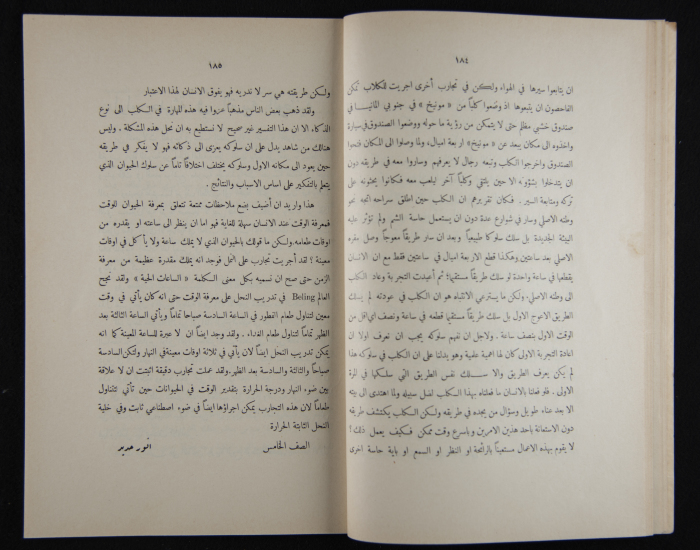 ١٨٤
ان يتابعوا سيرها في الهواء ولكن في تجارب أخرى اجريت للكلاب تمكن
الفاحصون ان يتبعوها اذ وضعوا كلباً من « مونيخ » في جنوبي المانيا في
صندوق خشبي مظلم حتى لا يتمكن من رؤية ما حوله ووضعوا الصندوق في سيارة
واخذوه الى مكان يبعد عن « مونيخ » اربعة اميال، ولما وصلوا الى المكان فتحوا
الصندوق واخرجوا الكلب وتبعه رجال لا يعرفهم وساروا معه في طريقه دون
ان يتدخلوا بشؤونه الا حين يلتقي وكلباً آخر ليلعب معه فكانوا يحثونه على
تركه ومتابعة السير. فكان تقريرهم ان الكلب حين اطلق سراحه اتجه نحو
وطنه الاصلي وسار في شوارع عدة دون ان يستعمل حاسة الشم ولم تؤثر عليه
البيئة الجديدة بل سلك سلوكا طبيعياً وبعد ان سار طريقاً معوجاً وصل مقره
الاصلي بعد ساعتين وهكذا قطع الاربعة اميال في ساعتين فقط مع ان الانسان
يقطعها في ساعة واحدة لو سلك طريقاً مستقيماً، ثم أعيدت التجربة وعاد الكلب
الى وطنه الاصلي. ولكن ما يسترعي الانتباه هو ان الكلب في عودته لم يسلك
الطريق الاعوج الاول بل سلك طريقاً مستقيما قطعه في ساعة ونصف اي اقل من
الوقت الاول بنصف ساعة. ولاجل ان نفهم سلوكه يجب ان نعرف اولا ان
اعادة التجربة الاولى كان لها اهمية علمية وهو يدلنا على ان الكلب في سلوكه هذا
لم يكن يعرف الطريق والا سلك نفس الطريق التي سلكها في المرة
الاولى. فلو فعلنا بالانسان ما فعلناه بهذا الكلب لضل سبيله ولما اهتدى الى بيته
الا بعد عناء طويل وسؤال من يجده في طريقه ولكن الكلب يكتشف طريقه
دون الاستعانة باحد هذين الامرين وباسرع وقت ممكن فكيف يعمل ذلك!
لا يقوم بهذه الاعمال مستعيناً بالرائحة او النظر او السمع او باية حاسة اخرى
١٨٥
ولكن طريقته هي سر لا ندريه فهو يفوق الانسان لهذا الاعتبار
ولقد ذهب بعض الناس مذهباً عزوا فيه هذه المهارة في الكلب الى نوع
الذكاء الا ان هذا التفسير غير صحيح لا نستطيع به ان نحل هذه المشكلة. وليس
هنالك من شاهد يدل على ان سلوكه يعزى الى ذكائه فهو لا يفكر في طريقه
حين يعود الى مكانه الاول وسلوكه يختلف اختلافاً تاماً عن سلوك الحيوان الذي
يتعلم بالتفكير على اساس الاسباب والنتائج.
هذا واريد ان أضيف بضع ملاحظات ممتعة تتعلق بمعرفة الحيوان للوقت
فمعرفة الوقت عند الانسان سهلة للغاية فهو اما ان ينظر الى ساعته او يقدره من
اوقات طعامه. ولكن ما قولك بالحيوان الذي لا يملك ساعة ولا يأكل في اوقات
معينة ؟ لقد أجريت تجارب على النمل فوجد انه يملك مقدرة عظيمة من معرفة
الزمن حتى صح ان نسميه بكل معنى الكلمة « الساعات الحية » ولقد نجح
العالم Beling في تدريب النحل على معرفة الوقت حتى انه كان يأتي في وقت
معين لتناول طعام الفطور في الساعة السادسة صباحاً تماماً ويأتي الساعة الثالثة بعد
الظهر تماماً لتناول طعام الغداء. ولقد وجد ايضاً ان لا عبرة للساعة المعينة كما انه
يمكن تدريب النحل ايضاً لان يأتي في ثلاثة اوقات معينة في النهار ولتكن السادسة
صباحاً والثالثة والسادسة بعد الظهر. ولقد عملت تجارب دقيقة اثبتت ان لا علاقة
بين ضوء النهار ودرجة الحرارة بتقدير الوقت في الحيوانات حين تأتي لتتناول
طعاماً لان هذه التجارب يمكن اجراؤها ايضاً في ضوء اصطناعي ثابت وفي خلية
النحل الثابتة الحرارة
الصف الخامس انور